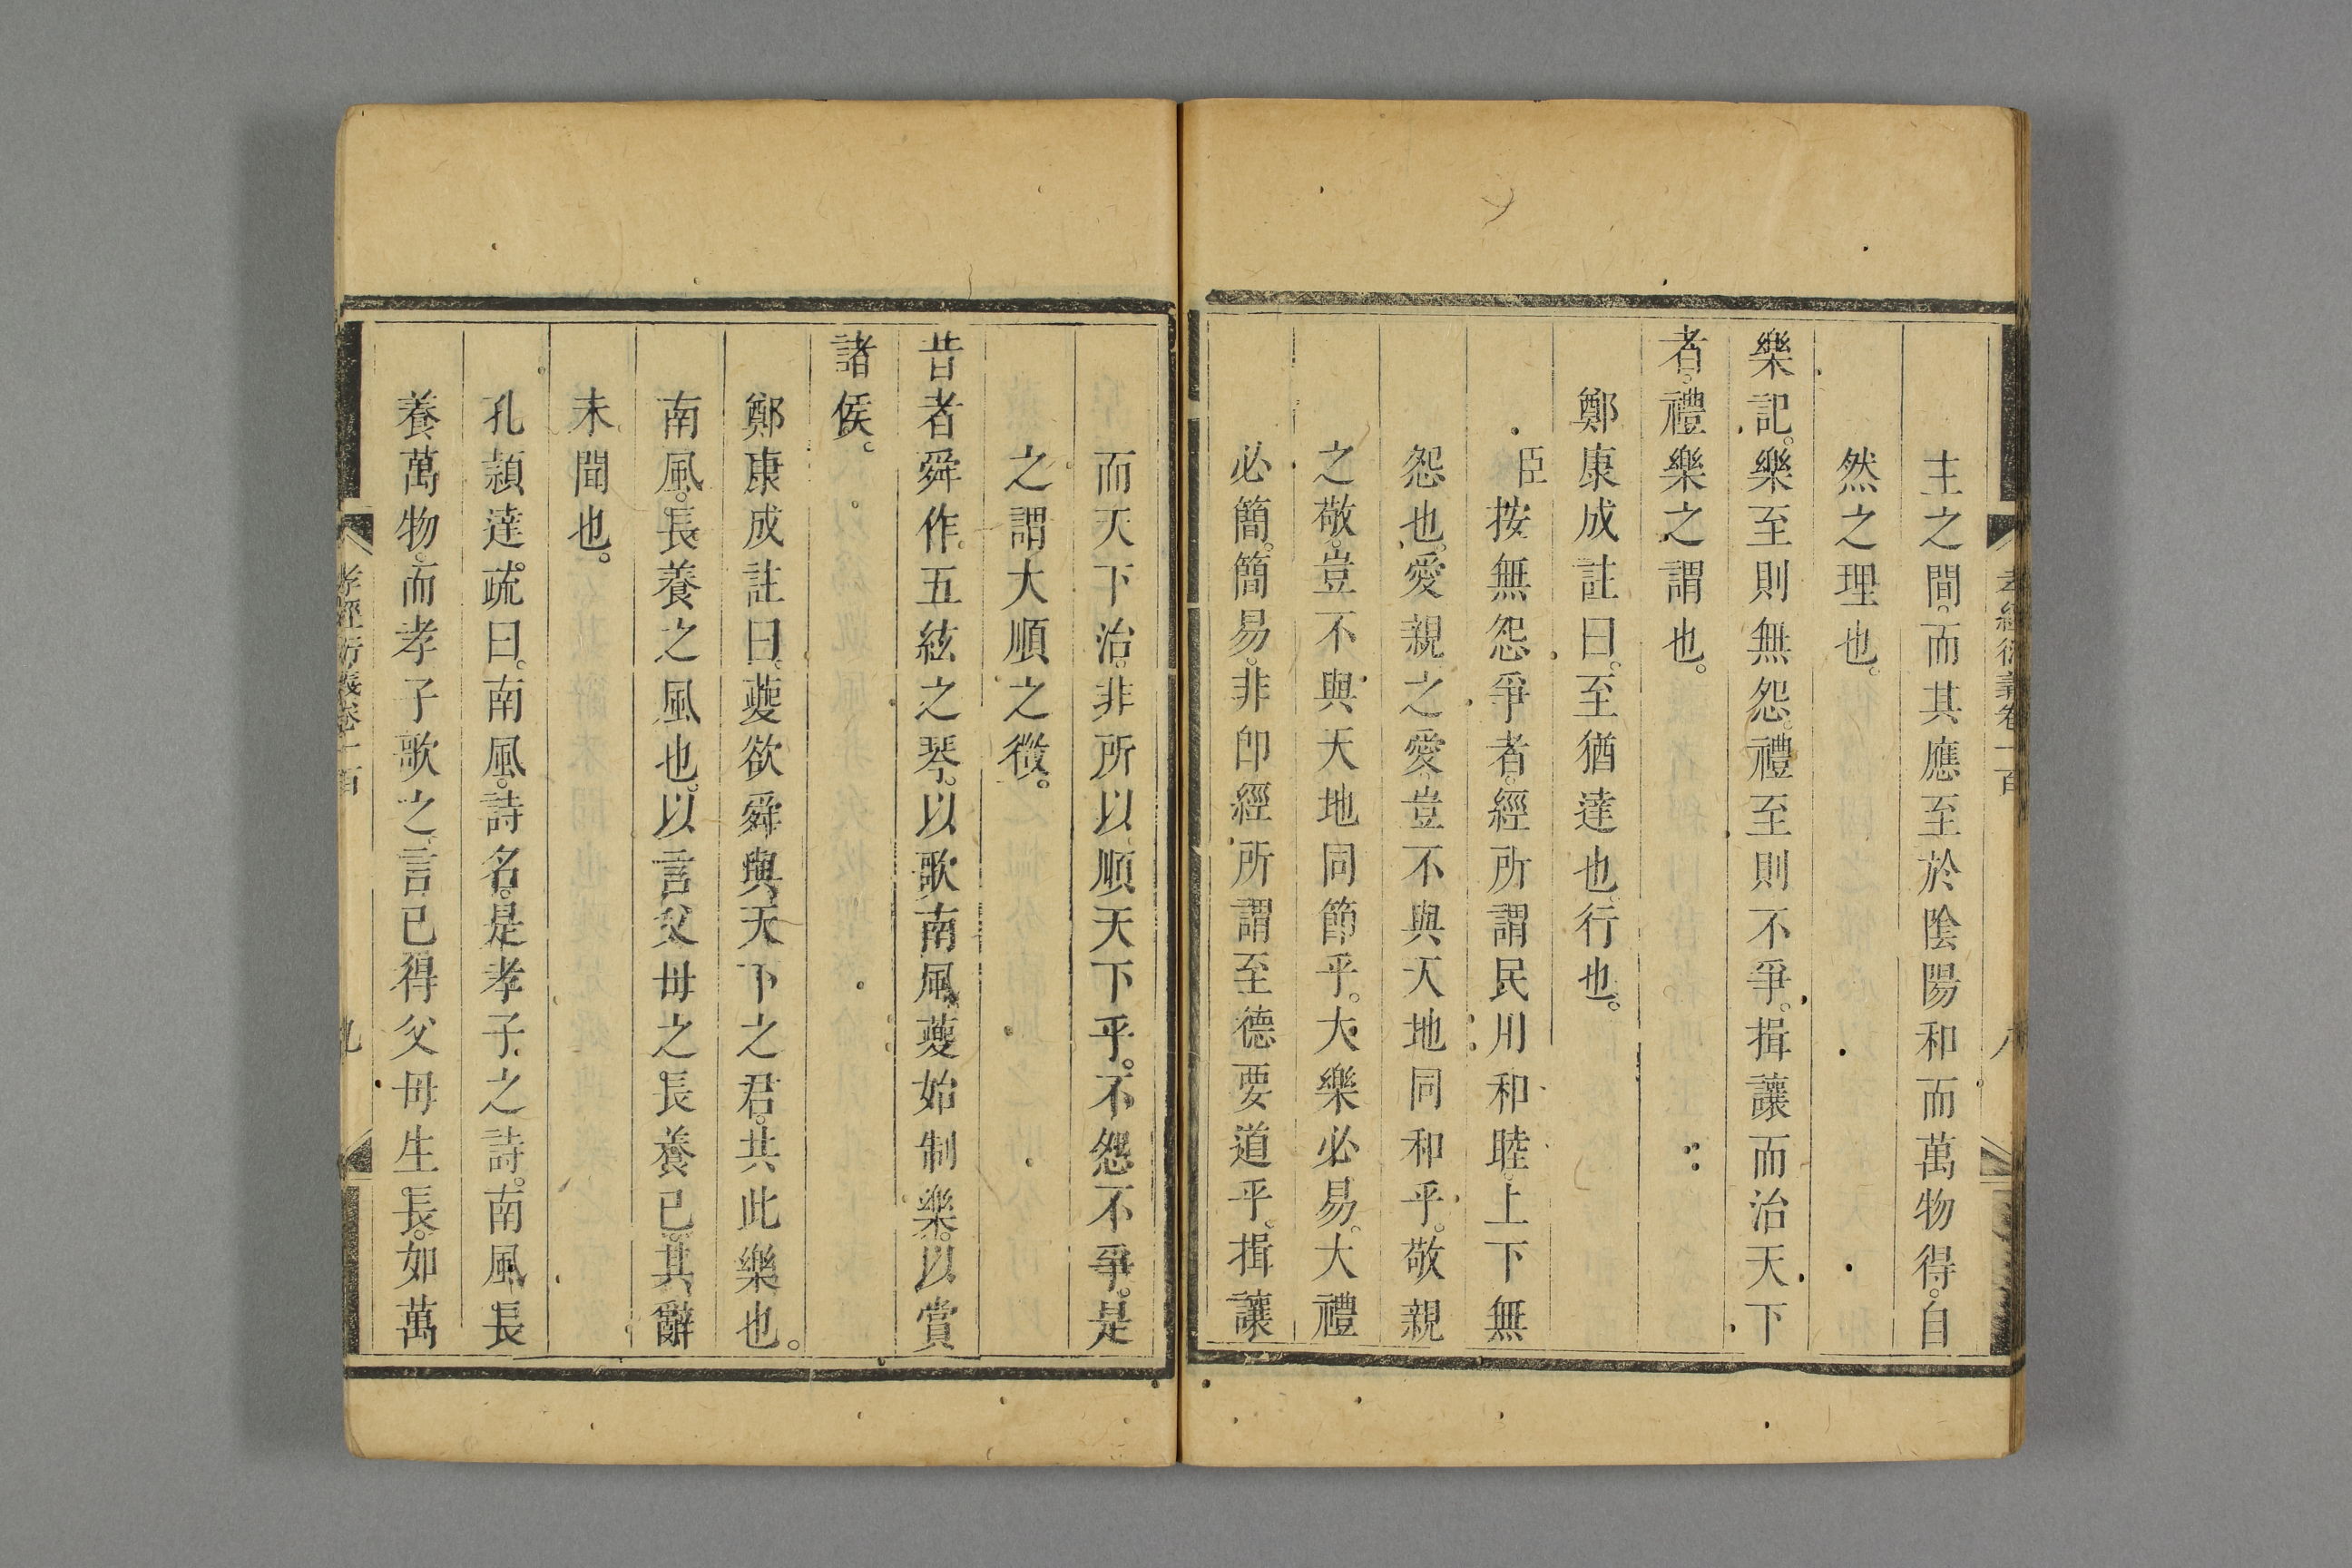 主之間。而其應至於陰陽和而萬物得。自
然之理也。
樂記。樂至則無怨。禮至則不爭。揖讓而治天下
者。禮樂之謂也。
鄭康成註曰。至猶達也。行也。
臣按無怨爭者。經所謂民用和睦。上下無
怨也。愛親之愛。豈不與天地同和乎。敬親
之敬。豈不與天地同節乎。大樂必易。大禮
必簡。簡易。非卽經所謂至德要道乎。揖讓
而天下治。非所以順天下乎。不怨不爭。是
之謂大順之徵。
昔者舜作五絃之琴。以歌南風。夔始制樂。以賞
諸侯。
鄭康成註曰。夔欲舜與天下之君。共此樂也。
南風。長養之風也。以言父母之長養已。其辭
未聞也。
孔穎達疏曰。南風。詩名。是孝子之詩。南風長
養萬物。而孝子歌之。言已得父母生長。如萬
孝經衍義卷一百
九